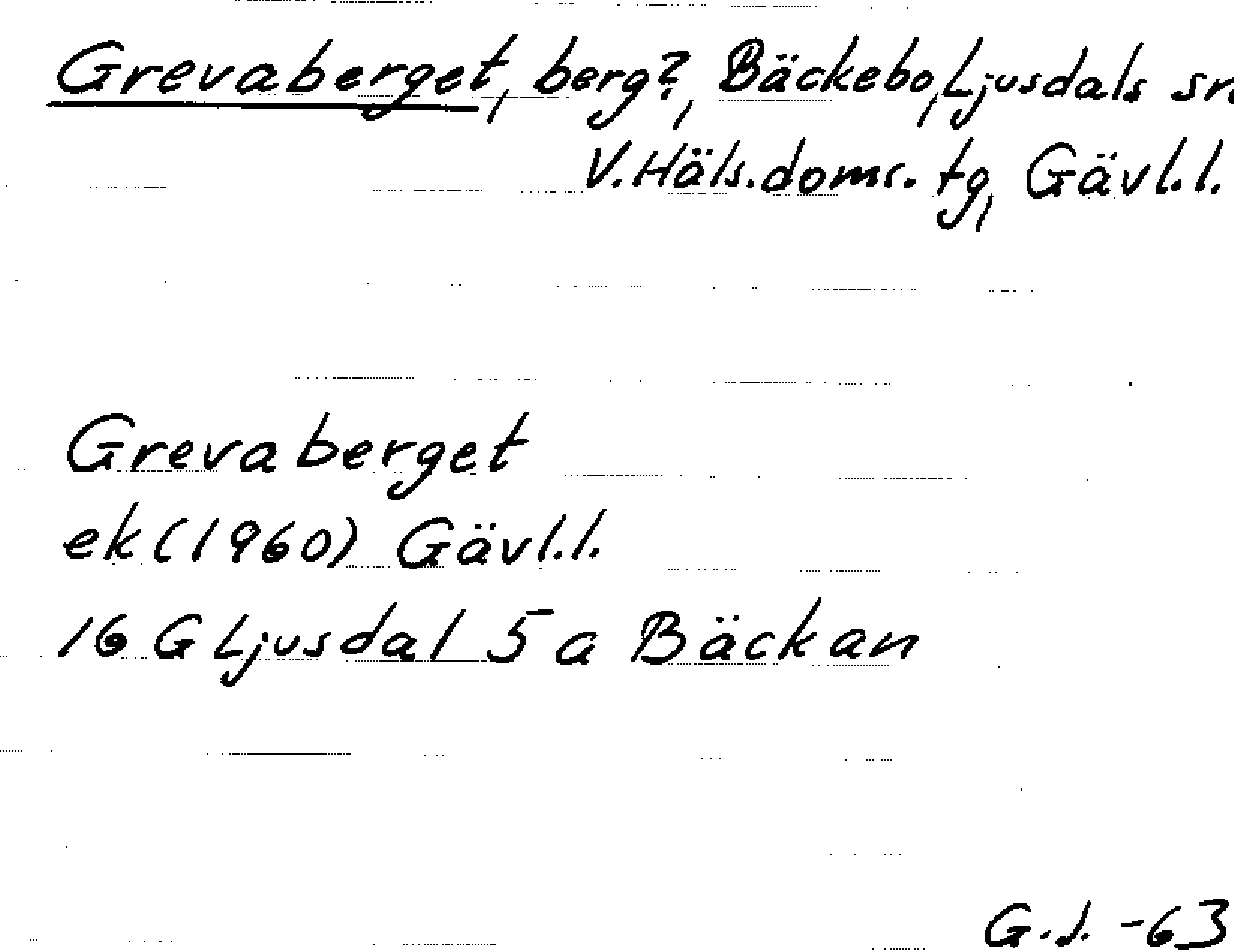 Grevaberget, berg?, Bäckebo, Ljusdals sn
V. Häls. doms. tg, Gävl.l.
Grevaberget
ek (1960) Gävl.l.
16 G Ljusdal 5 a Bäckan
G.J. -63